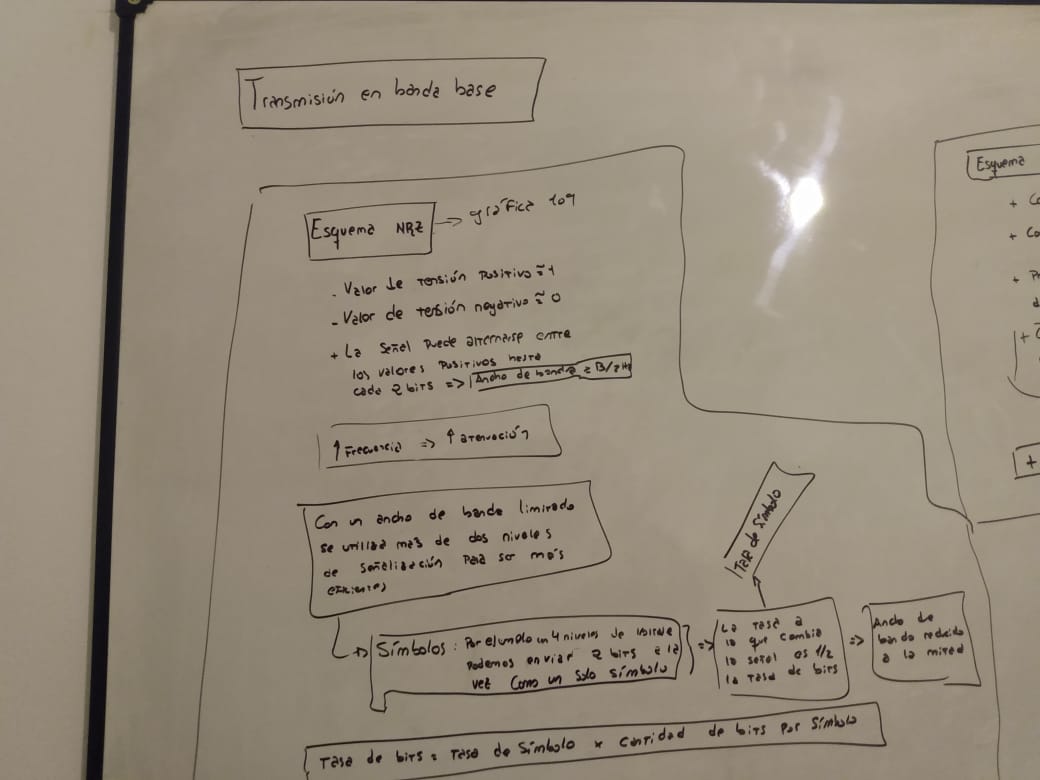 Transmisión en banda base
Esquema NRZ => gráfica 109
- Valor de tensión positivo ≈ 1
- Valor de tensión negativo ≈ 0
+ La señal puede alternarse entre
los valores positivos hasta
cada 2 bits => Ancho de banda ≥ B/2 Hz
↑ Frecuencia => ↑ atenuación
Con un ancho de banda limitado
se utiliza más de dos niveles
de señalización para ser más
eficientes
Símbolos : Por ejemplo en 4 niveles de
podemos enviar 2 bits a la
vez como un solo símbolo
=> La tasa a
la que cambia
la señal es 1/2
la tasa de bits
Tasa de Símbolo
=> Ancho de
banda reducido
a la mitad
Tasa de bits = Tasa de Símbolo x cantidad de bits por Símbolo
Esquema
+ Co
+ Co
+ Pr
d
+ C
+